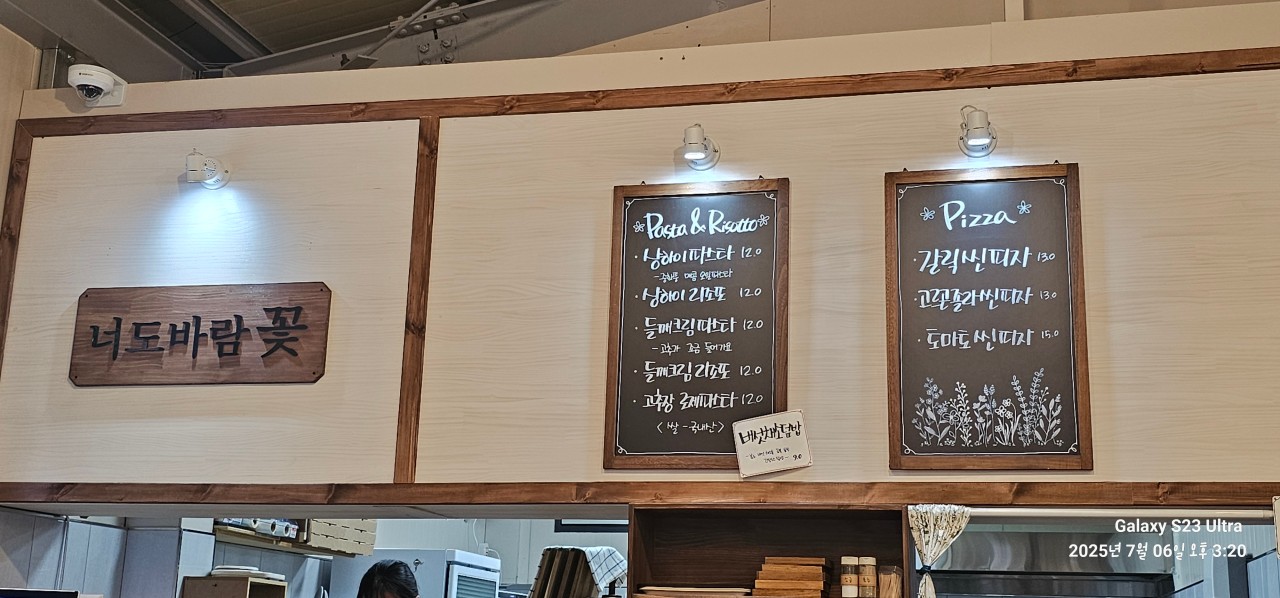 너도바람꽃
Pasta & Risotto
· 상하이 파스타 12.0
· 상하이 리조또 12.0
· 들깨크림 파스타 12.0
- 고추가 조금 들어가요
· 들깨크림 리조또 12.0
· 고추장 로제파스타 12.0
< 쌀 - 국내산 >
버섯채소덮밥
9.0
Pizza
· 갈릭 씬 피자 13.0
· 고르곤졸라 씬 피자 13.0
· 토마토 씬 피자 15.0
Galaxy S23 Ultra
2025년 7월 06일 오후 3:20